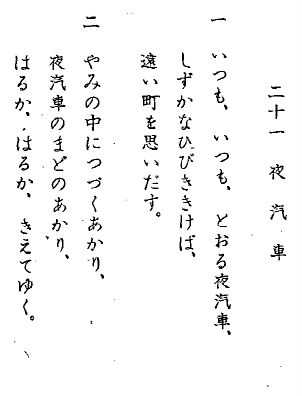 二十一 夜汽車
一 いつも、いつも、とおる夜汽車、
しずかなひびききけば、
遠い町を思いだす。
二 やみの中につづくあかり、
夜汽車のまどのあかり、
はるか、はるか、きえてゆく。